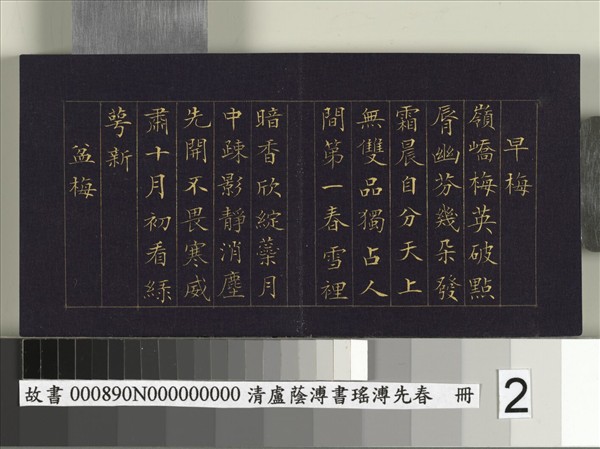 早梅
嶺嶠梅英破點
脣幽芬幾朵發
霜晨自分天上
無雙品獨占人
間第一春雪裡
暗香欣綻蘂月
中疎影靜消塵
先開不畏寒威
肅十月初看綠
萼新
盆梅
故書 000890N000000000 清盧蔭溥書瑤溥先春 冊
2